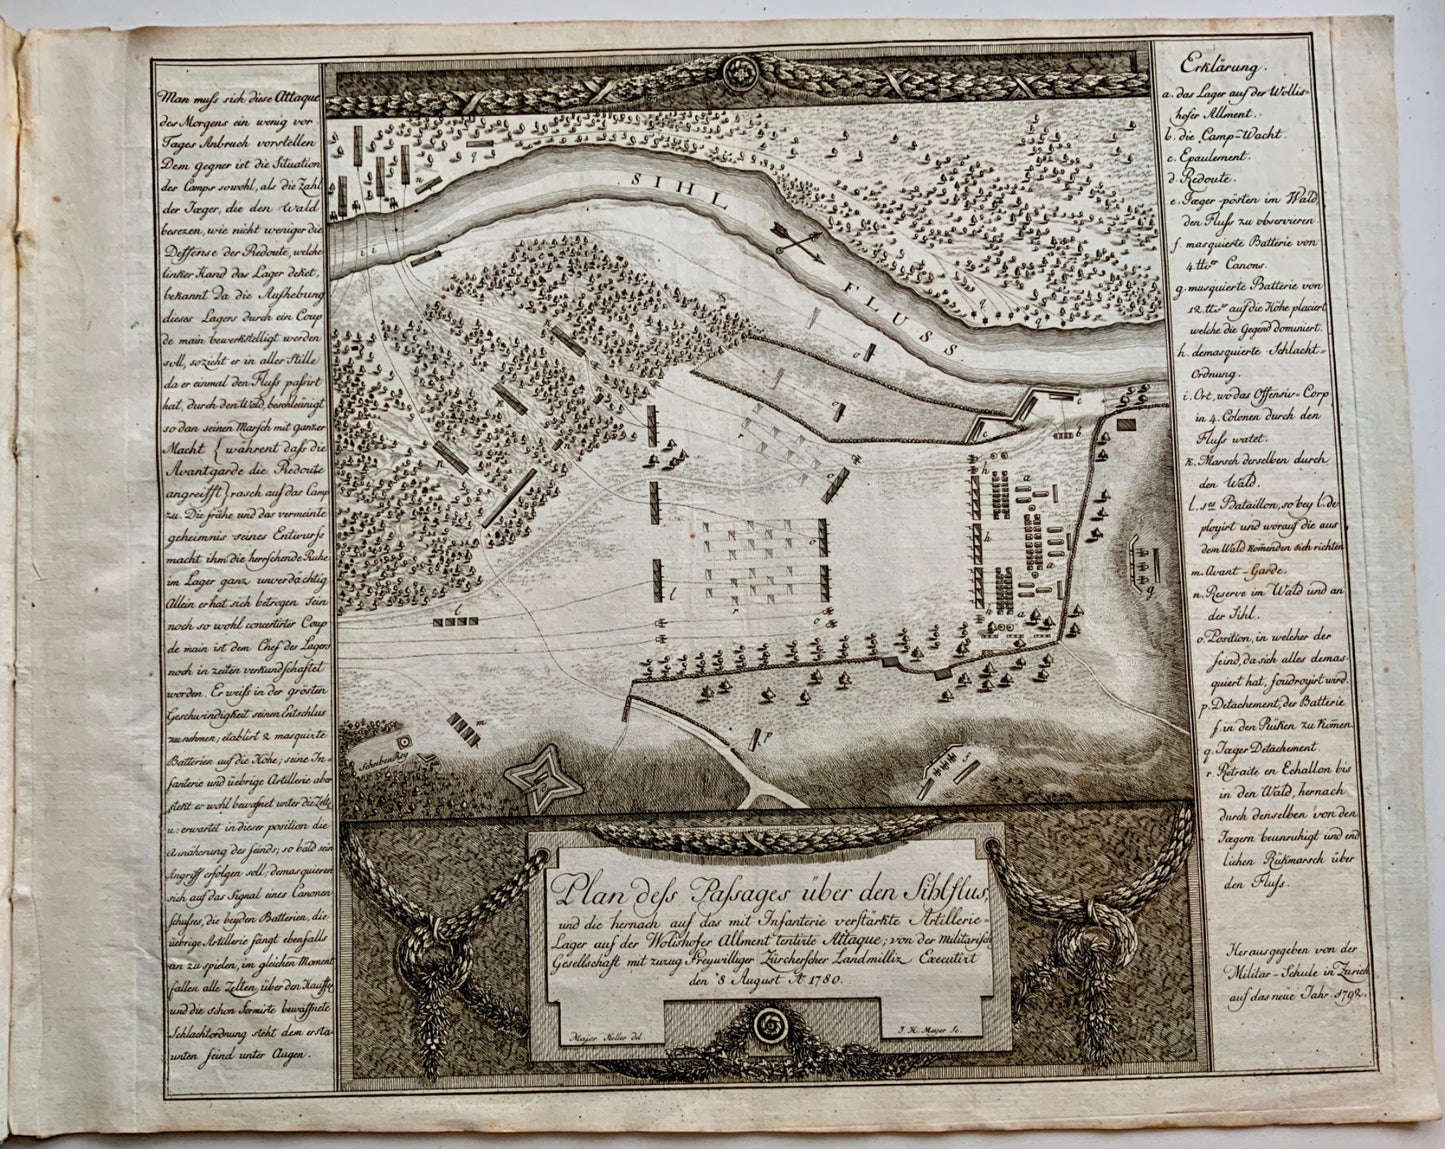 Man muss sich diese Attaque
des Morgens ein wenig vor
Tages Anbruch vorstellen
Dem gegner ist die Situation
des Camps sowohl, als die Zahl
der Jæger, die den Wald
besezen, wie nicht weniger die
Deffense der Redoute, welche
linker Hand das Lager deket,
bekannt Da die Aufhebung
dieses Lagers durch ein Coup
de main bewerkstelligt werden
soll, so zieht er in aller Stille
da er einmal den Fluss passirt
hat, durch den Wald, beschleünigt
so dan seinen Marsch mit ganzer
Macht { währent dass die
Avantgarde die Redoute
angreifft } rasch auf das Camp
zu. Die frühe und das vermeinte
geheimnis seines Entwurfs
macht ihm die herrschende Ruhe
im Lager ganz unverdächtig
Allein er hat sich betrogen Sein
noch so wohl concertirter Coup
de main ist dem Chef des Lagers
noch in zeiten verkundschaftet
worden. Er weiss in der grösten
Geschwindigkeit seinen Entschlus
zu nehmen; etablirt 2 masquirte
Batterien auf die Höhe; seine In-
fanterie und üebrige Artillerie aber
steht er wohl bewafnet unter die Zelte
u: erwartet in dieser position die
Annäherung des feinds; so bald sein
Angriff erfolgen soll; demasquieren
sich auf das Signal eines Canonen
schusses, die beyden Batterien, die
üebrige Artillerie fängt ebenfalls
an zu spielen, im gleichen Moment
fallen alle Zelten, über den Hauffe
und die schon formirte bewaffnete
Schlachtordnung steht dem ersta-
unten feind unter Augen.
SIHL FLUSS
Plan dess Passages über den Sihlflus,
und die hernach auf das mit Infanterie verstärkte Artillerie-
Lager auf der Wolishofer Allment tentirte Attaque; von der Militarisch
Gesellschaft mit zuzug Freywilliger Zürcherscher Landmilliz Executirt
den 8 August Aº 1780.
Major Keller del
J. H. Meyer Sc.
Erklärung.
a. das Lager auf der Wollis-
hofer Allment.
b. die Camp-Wacht.
c. Epaulement.
d. Redoute.
e. Jæger-pösten im Wald
den Fluss zu observieren.
f. masquierte Batterie von
4 tter Canons.
g. musquierte Batterie von
12 tter auf die Höhe placiert
welche die Gegend dominiert.
h. demasquierte Schlacht-
Ordnung.
i. Ort, wo das Offensiv-Corp
in 4. Colonen durch den
Fluss watet.
k. Marsch derselben durch
den Wald.
l. 1ter Bataillon, so bey l. de
ployirt und worauf die aus
dem Wald kom̄enden sich richten
m. Avant-Garde.
n. Reserve im Wald und an
der Sihl.
o. Position, in welcher der
feind, da sich alles demas-
quiert hat, foudroyirt wird.
p. Detachement, der Batterie
f. in den Rüken zu kom̄en
q. Jæger Detachement.
r. Retraite en Echallon bis
in den Wald, hernach
durch denselben von den
Jægern beunruhigt und end
lichen Rükmarsch über
den Fluss.
Herausgegeben von der
Militar-Schule in Zurich
auf das neüe Jahr. 1792.